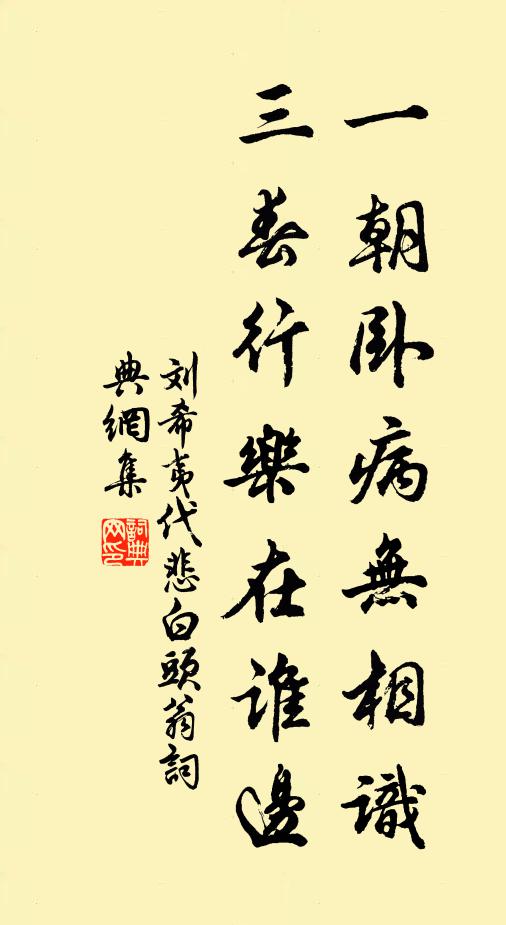 一朝卧病無相識
三春行樂在誰邊
刘希夷代悲白頭翁詞
典網集
詞典网印